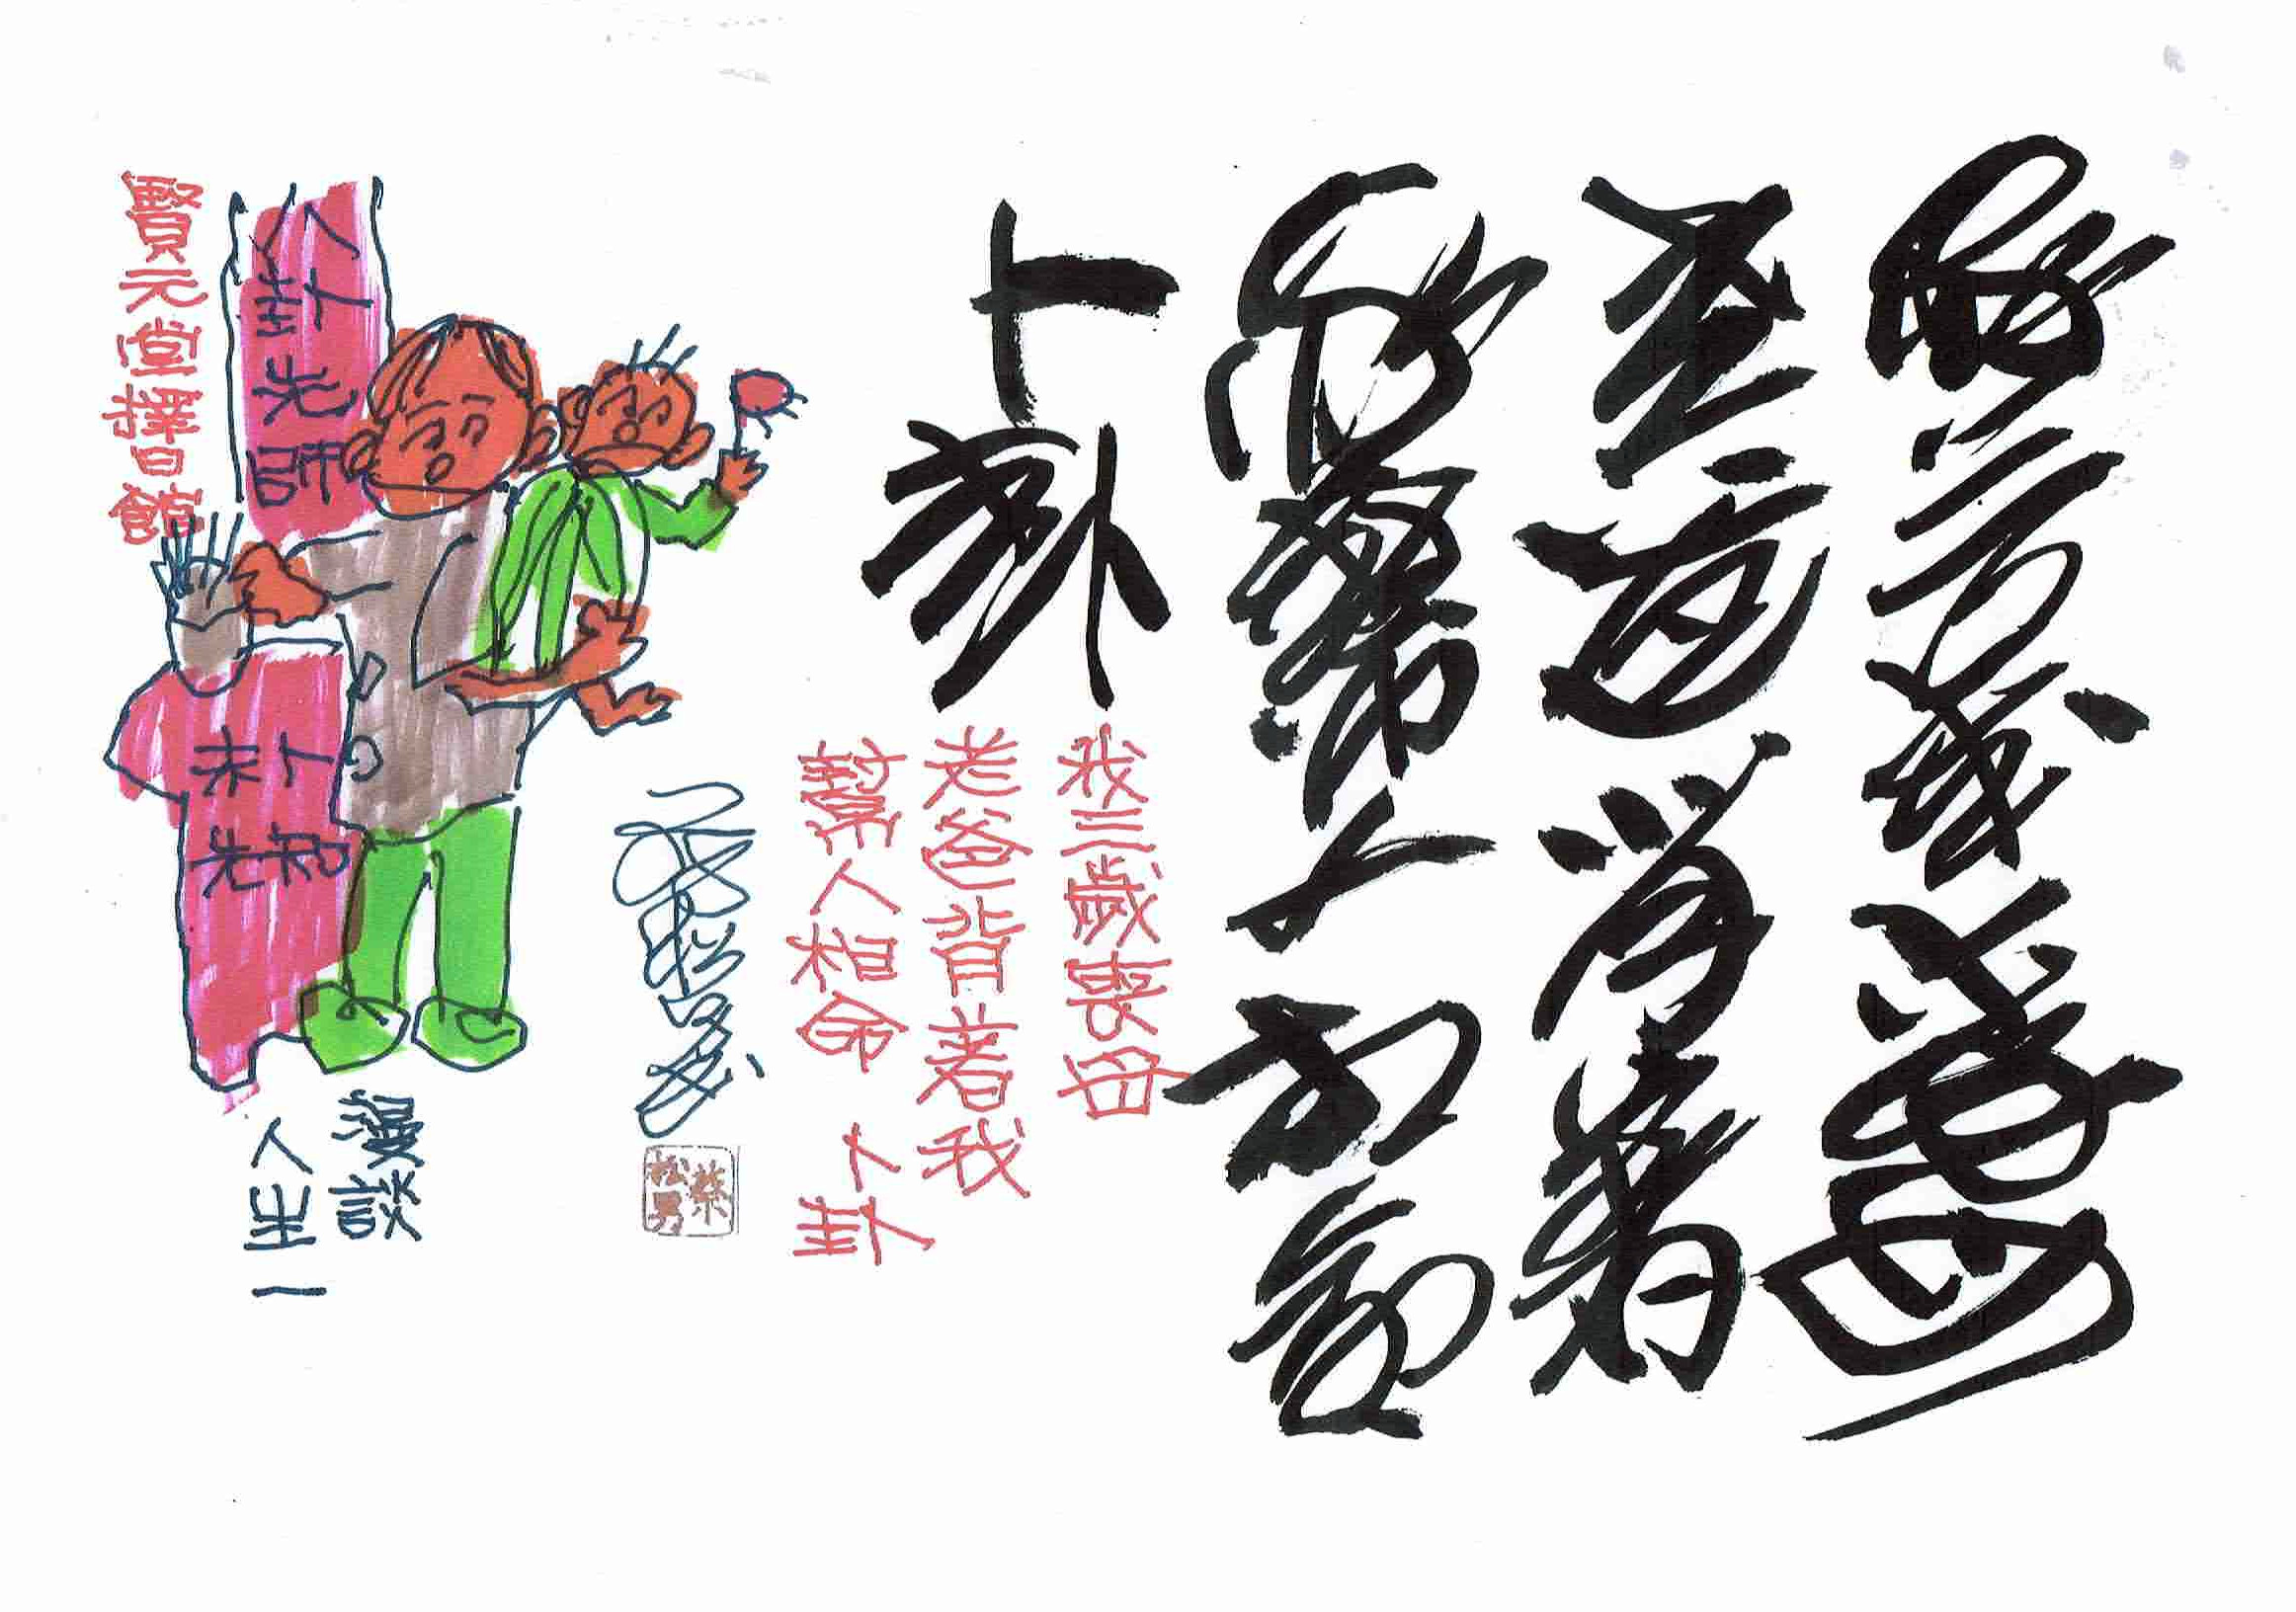 我三歲喪母
老爸背著
我幫人相命
卜卦
我三歲喪母
老爸背著我
幫人相命 卜卦
蔡松男
八卦先師
賢元堂擇日館
未卜先知
漫談
人生一